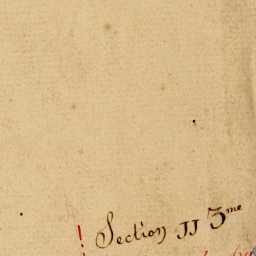 ! Section JJ 3me